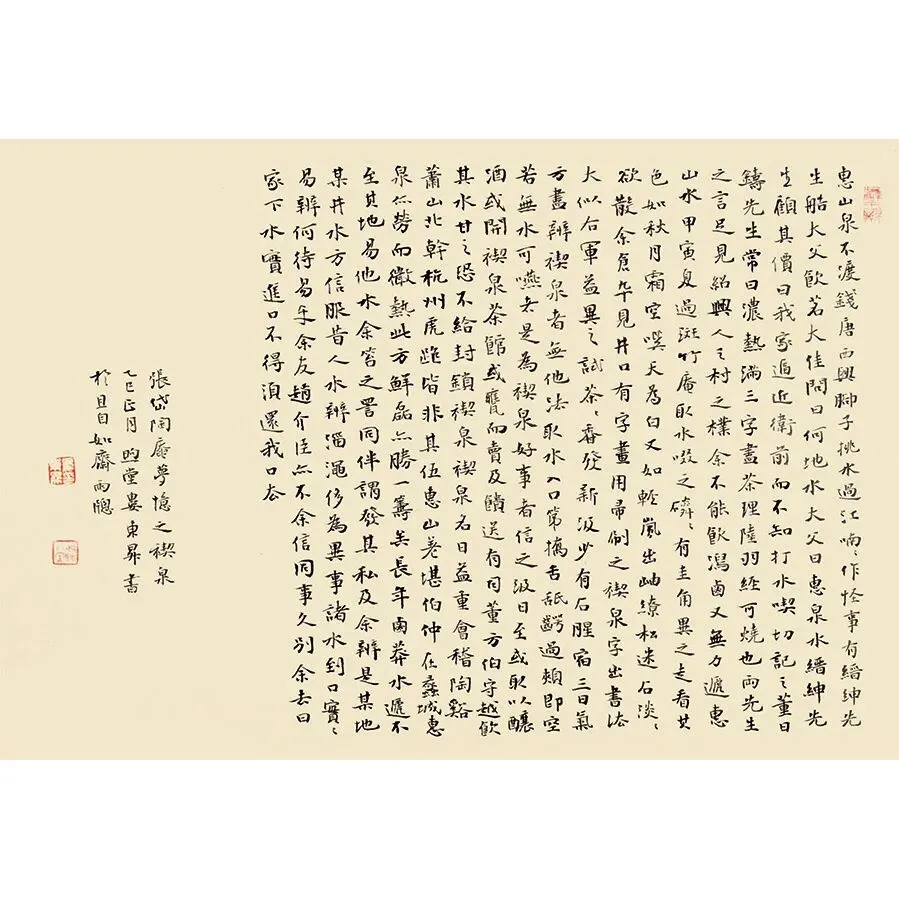 惠山泉不渡錢唐西興腳子挑水過江喃〻作怪事有縉紳先
生船大父飲茗大佳問曰何地水大父曰惠泉水縉紳先
生顧其價曰我家逼近衛前而不知打水喫切記之董日
鑄先生常曰濃熱滿三字盡茶理陸羽經可燒也兩先生
之言足見紹興人之村之樸余不能飲瀉鹵又無力遞惠
山水甲寅夏過斑竹庵取水啜之磷〻有圭角異之走看其
色如秋月霜空噀天為白又如輕嵐出岫繚松迷石淡〻
欲散余倉卒見井口有字畫用帚刷之禊泉字出書法
大似右軍益異之試茶〻香發新汲少有石腥宿三日氣
方盡辨禊泉者無他法取水入口第撟舌舐齶過頰即空
若無水可嚥者是為禊泉好事者信之汲日至或取以釀
酒或開禊泉茶館或甕而賣及饋送有司董方伯守越飲
其水甘之恐不給封鎖禊泉禊泉名日益重會稽陶谿
蕭山北幹杭州虎跑皆非其伍惠山差堪伯仲在蠡城惠
泉亦勞而微熱此方鮮磊亦勝一籌矣長年鹵莽水遞不
至其地易他水余笞之詈同伴謂發其私及余辨是某地
某井水方信服昔人水辨淄澠侈為異事諸水到口實〻
易辨何待易牙余友趙介臣亦不余信同事久別余去曰
家下水實進口不得須還我口去
張岱陶庵夢憶之禊泉
乙巳正月 昀堂婁東昇書
於且自如齋南牕